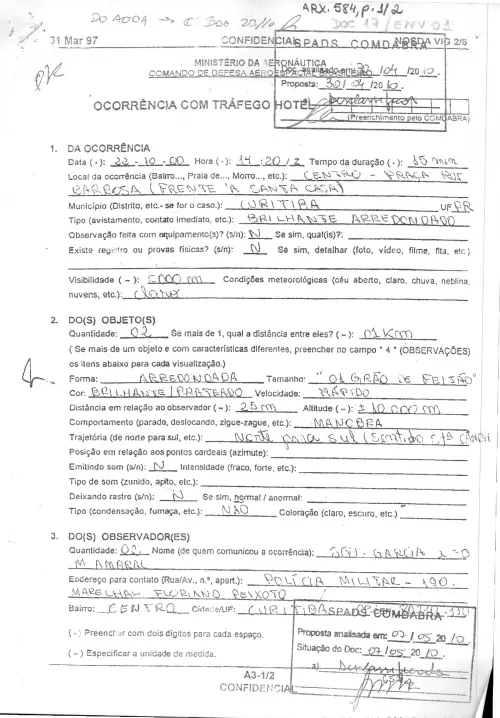 ARX. 584, p. 1/2
DOC 17 / ENV 01
31 Mar 97 CONFIDENCIAL SPADS COMDABRA NOSDA VIG 2/6
MINISTÉRIO DA AERONÁUTICA
COMANDO DE DEFESA AEROESPACIAL BRASILEIRO
Doc. analisado em: 30 /04 /2010.
Proposta: 30/ 04 /2010.
OCORRÊNCIA COM TRÁFEGO HOTEL
(Preenchimento pelo COMDABRA)
1. DA OCORRÊNCIA
Data (·): 22 - 10 - 00 Hora (·): 14 : 20 / Z Tempo da duração (·): 15 min
Local da ocorrência (Bairro..., Praia de..., Morro..., etc.): CENTRO - PRAÇA RUI
BARBOSA (FRENTE 'A SANTA CASA)
Município (Distrito, etc.- se for o caso.): CURITIBA UF PR
Tipo (avistamento, contato imediato, etc.): BRILHANTE ARREDONDADO
Observação feita com equipamento(s)? (s/n): N Se sim, qual(is)?:
Existe registro ou provas físicas? (s/n): N Se sim, detalhar (foto, vídeo, filme, fita, etc)
Visibilidade ( – ): 5000 m Condições meteorológicas (céu aberto, claro, chuva, neblina,
nuvens, etc.): claro
2. DO(S) OBJETO(S)
Quantidade: 02 Se mais de 1, qual a distância entre eles? ( – ): 01 Km
( Se mais de um objeto e com características diferentes, preencher no campo " 4 " (OBSERVAÇÕES)
os itens abaixo para cada visualização.)
Forma: ARREDONDADA Tamanho: " 01 GRÃO DE FEIJÃO"
Cor: BRILHANTE / PRATEADO Velocidade: RÁPIDO
Distância em relação ao observador ( – ): Altitude ( – ): ± 10 000 m
Comportamento (parado, deslocando, zigue-zague, etc.): MANOBRA
Trajetória (de norte para sul, etc.): Norte para sul (Sentido
Posição em relação aos pontos cardeais (azimute):
Emitindo som (s/n): N Intensidade (fraco, forte, etc.):
Tipo de som (zunido, apito, etc.):
Deixando rastro (s/n): N Se sim, normal / anormal:
Tipo (condensação, fumaça, etc.): NÃO Coloração (claro, escuro, etc.)
3. DO(S) OBSERVADOR(ES)
Quantidade: 02 Nome (de quem comunicou a ocorrência): GARCIA
M AMARAL
Endereço para contato (Rua/Av., n.º, apart.): POLÍCIA MILITAR - 190.
MARECHAL FLORIANO PEIXOTO
Bairro: CENTRO Cidade/UF: CURITIBA SPADS COMDABRA
(·) Preencher com dois dígitos para cada espaço.
Proposta analisada em: 07 / 05 20 10.
( – ) Especificar a unidade de medida.
Situação do Doc: 07 / 05 20 10.
a) Desclassificado
A3-1/2
CONFIDENCIAL